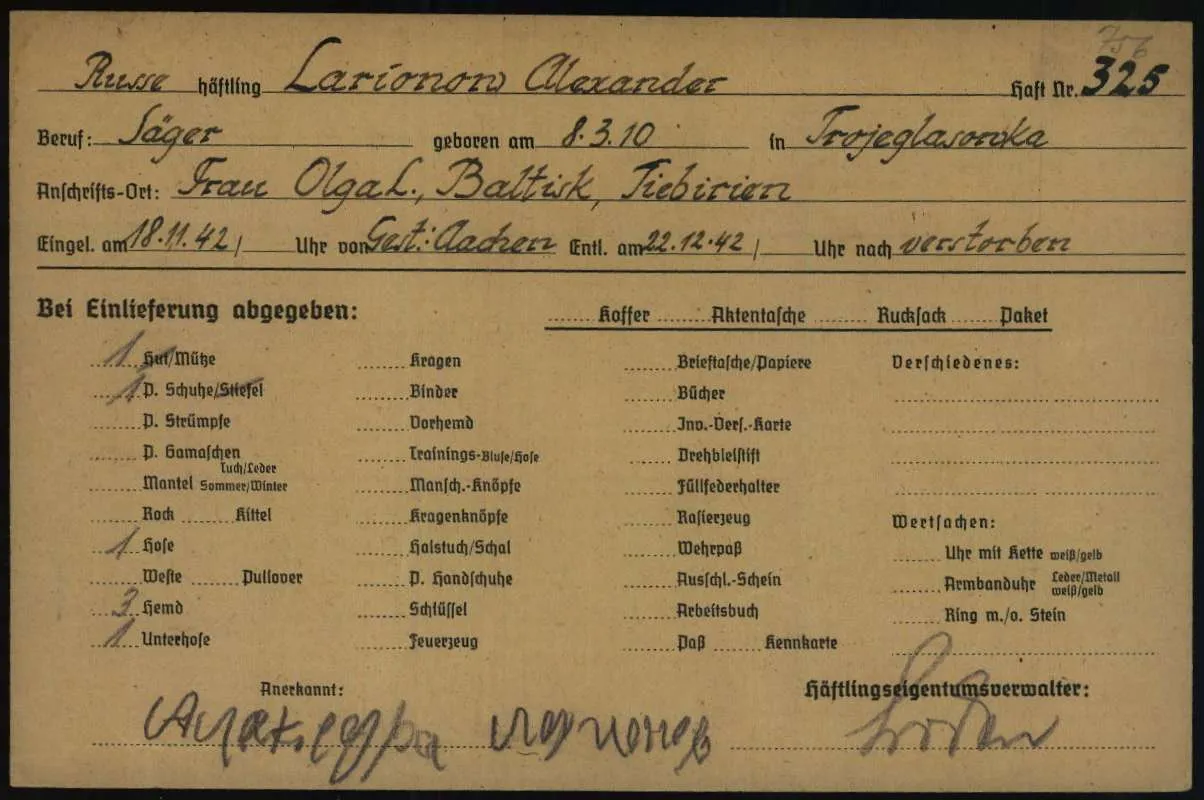 756
Russe Häftling Larionow Alexander Haft Nr. 325
Beruf: Jäger geboren am 8.3.10 in Trojeglasowka
Anschrifts-Ort: Frau Olga L., Baltisk, Tiebirien
Eingel. am 18.11.42 / Uhr von Gest: Aachen Entl. am 22.12.42 / Uhr nach verstorben
Bei Einlieferung abgegeben: Koffer Aktentasche Rucksack Paket
1 Hut/Mütze Kragen Brieftasche/Papiere Verschiedenes:
1 P. Schuhe/Stiefel Binder Bücher
P. Strümpfe Vorhemd Inv.-Vers.-Karte
P. Gamaschen Trainings-Bluse/Hose Drehbleistift
Tuch/Leder
Mantel Sommer/Winter Mansch.-Knöpfe Füllfederhalter
Rock Kittel Kragenknöpfe Rasierzeug Wertsachen:
1 Hose Halstuch/Schal Wehrpaß Uhr mit Kette weiß/gelb
Weste Pullover P. Handschuhe Ausschl.-Schein Armbanduhr Leder/Metall
weiß/gelb
3 Hemd Schlüssel Arbeitsbuch Ring m./o. Stein
1 Unterhose Feuerzeug Paß Kennkarte
Anerkannt: Häftlingseigentumsverwalter: